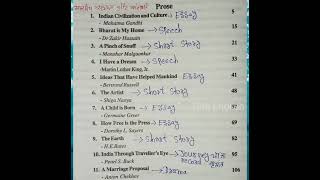 Prose
1. Indian Civilization and Culture → Essay 5
- Mahatma Gandhi
2. Bharat is My Home → Speech 15
- Dr Zakir Hussain
3. A Pinch of Snuff → Short Story 21
- Manohar Malgonkar
4. I Have a Dream → Speech 33
- Martin Luther King, Jr.
5. Ideas That Have Helped Mankind → Essay 41
- Bertrand Russell
6. The Artist → Short Story 52
- Shiga Naoya
7. A Child is Born → Essay 62
- Germaine Greer
8. How Free is the Press → Essay 82
- Dorothy L. Sayers
9. The Earth → Short Story 87
- H.E. Bates
10. India Through Traveller's Eye → Journey 95
- Pearl S. Buck record
11. A Marriage Proposal → Drama 106
- Anton Chekhov